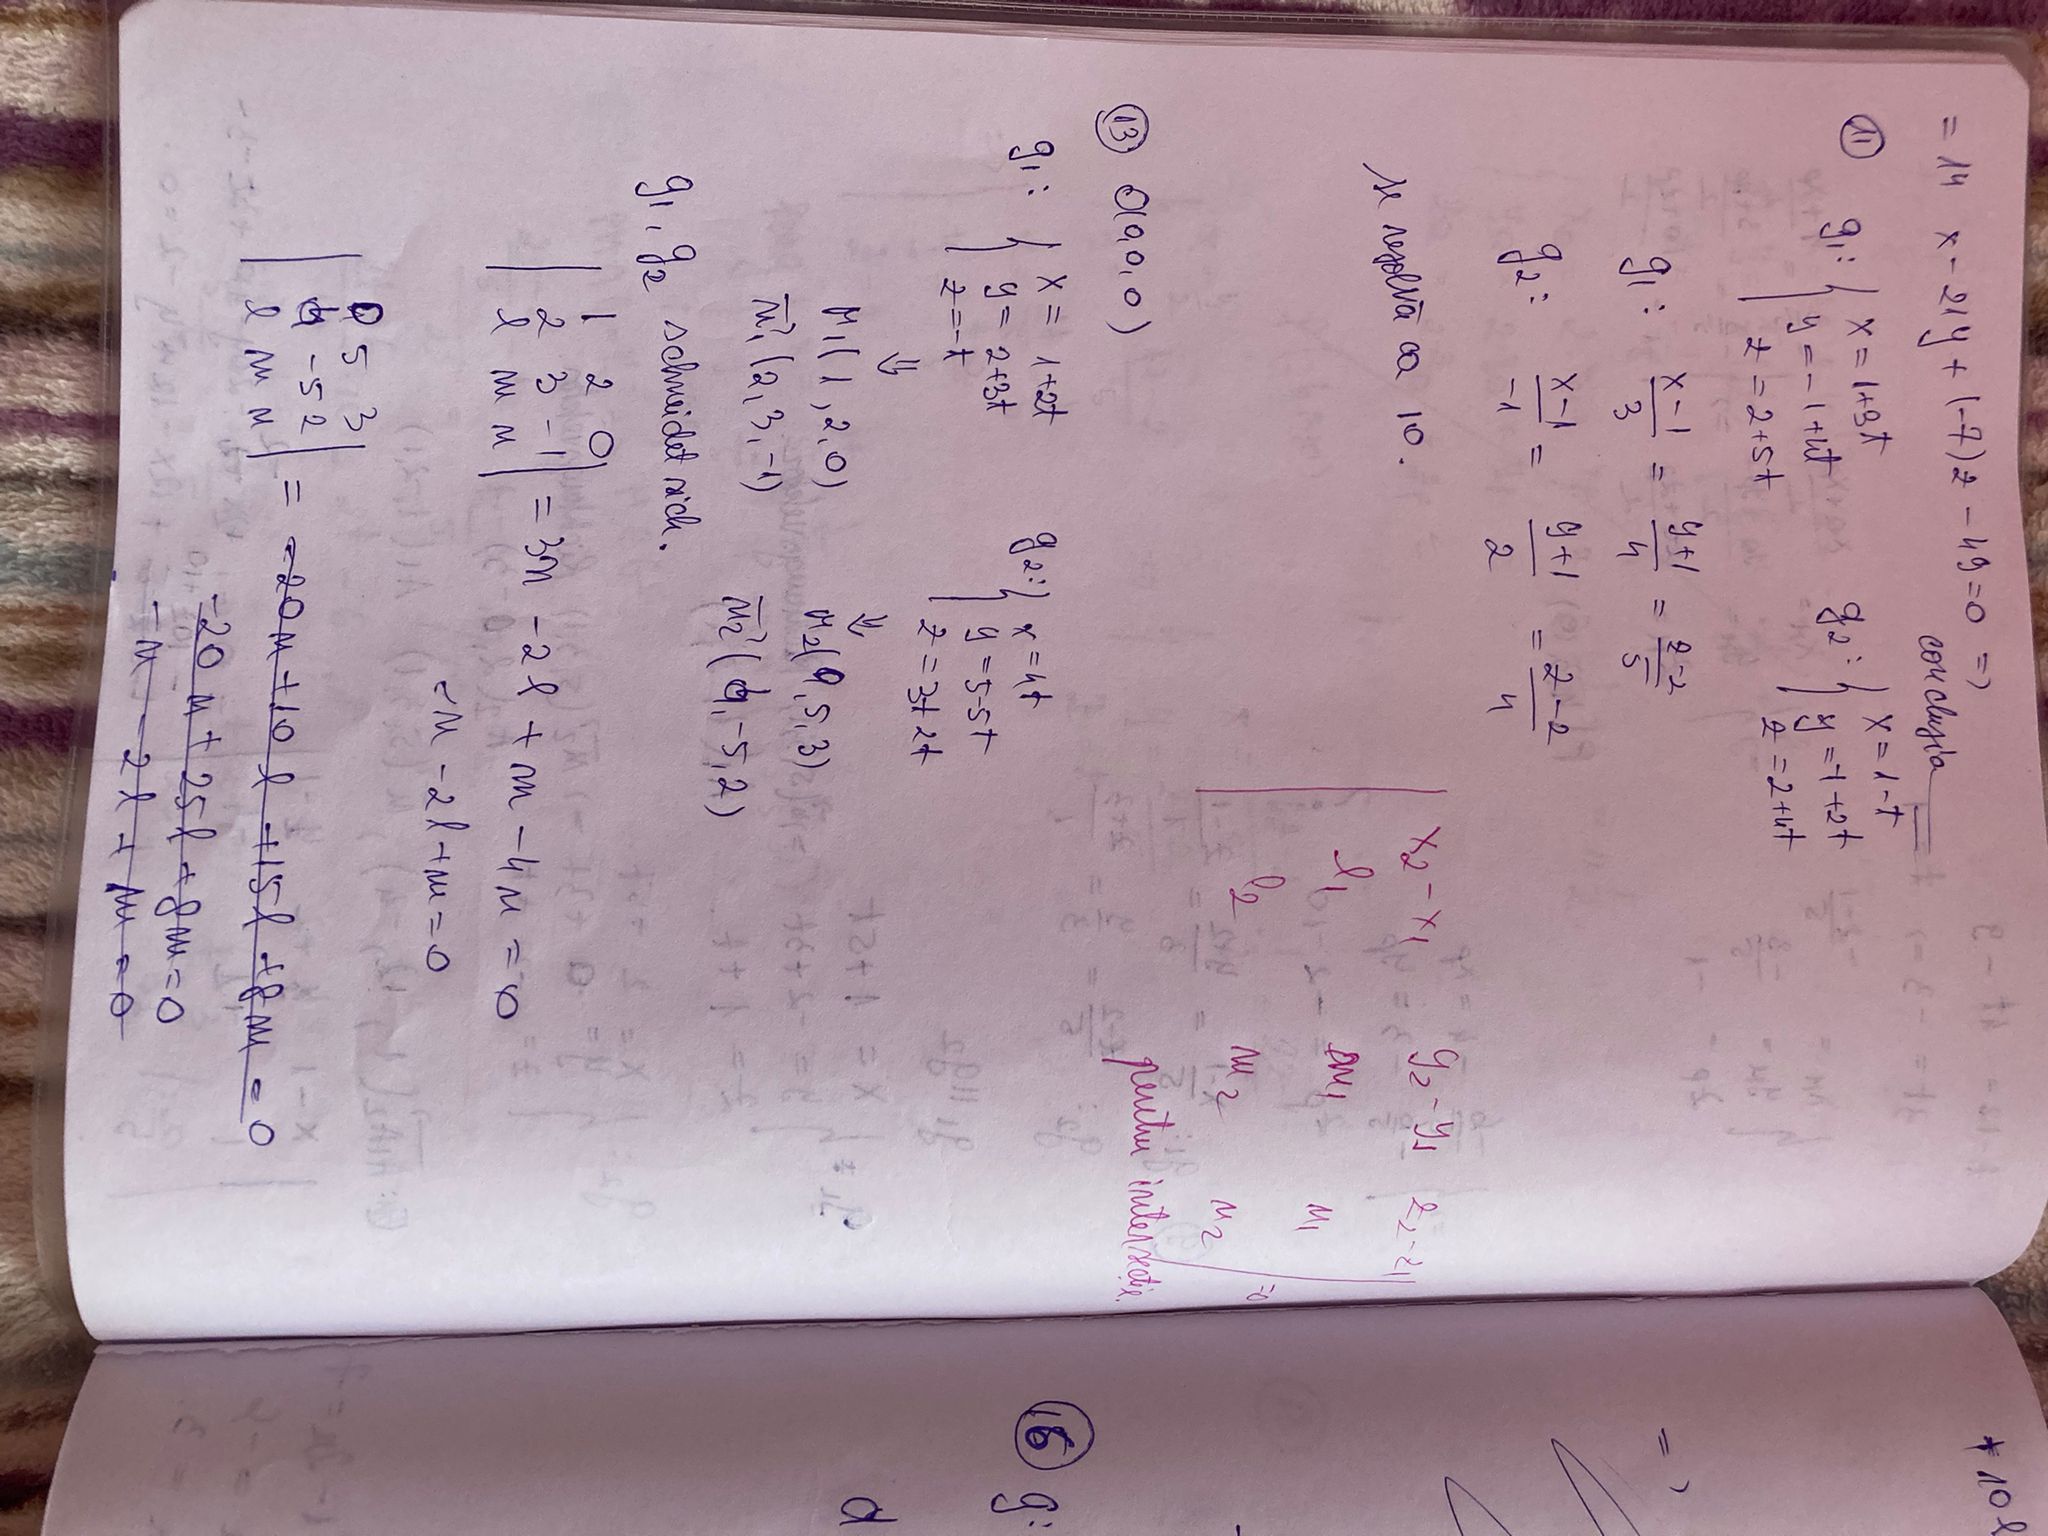 = 14 x - 21y + (-7)z - 49 = 0 =>
concluzia
11
g1: { x = 1+3t
y = -1+4t
z = 2+5t
g2: { x = 1-t
y = -1+2t
z = 2+4t
g1: (x-1)/3 = (y+1)/4 = (z-2)/5
g2: (x-1)/-1 = (y+1)/2 = (z-2)/4
se rezolvă ca 10.
| x2-x1 y2-y1 z2-z1 |
| l1 m1 n1 | = 0
| l2 m2 n2 |
pentru intersecție.
13 O(0,0,0)
g1: { x = 1+2t
y = 2+3t
z = -t
⇓
M1(1,2,0)
u1(2,3,-1)
g2: { x = 4t
y = 5-5t
z = 3+2t
⇓
M2(0,5,3)
u2(4,-5,2)
g1, g2 schneidet sich.
| 1 2 0 |
| 2 3 -1 | = 3n - 2l + m - 4n = 0
| l m n |
-n - 2l + m = 0
| 0 5 3 |
| 4 -5 2 | = -20n + 10l + 15l + 8m = 0
| l m n |
-20n + 25l + 8m = 0
-n - 2l + m = 0
+ 10l
=>
16 g:
d